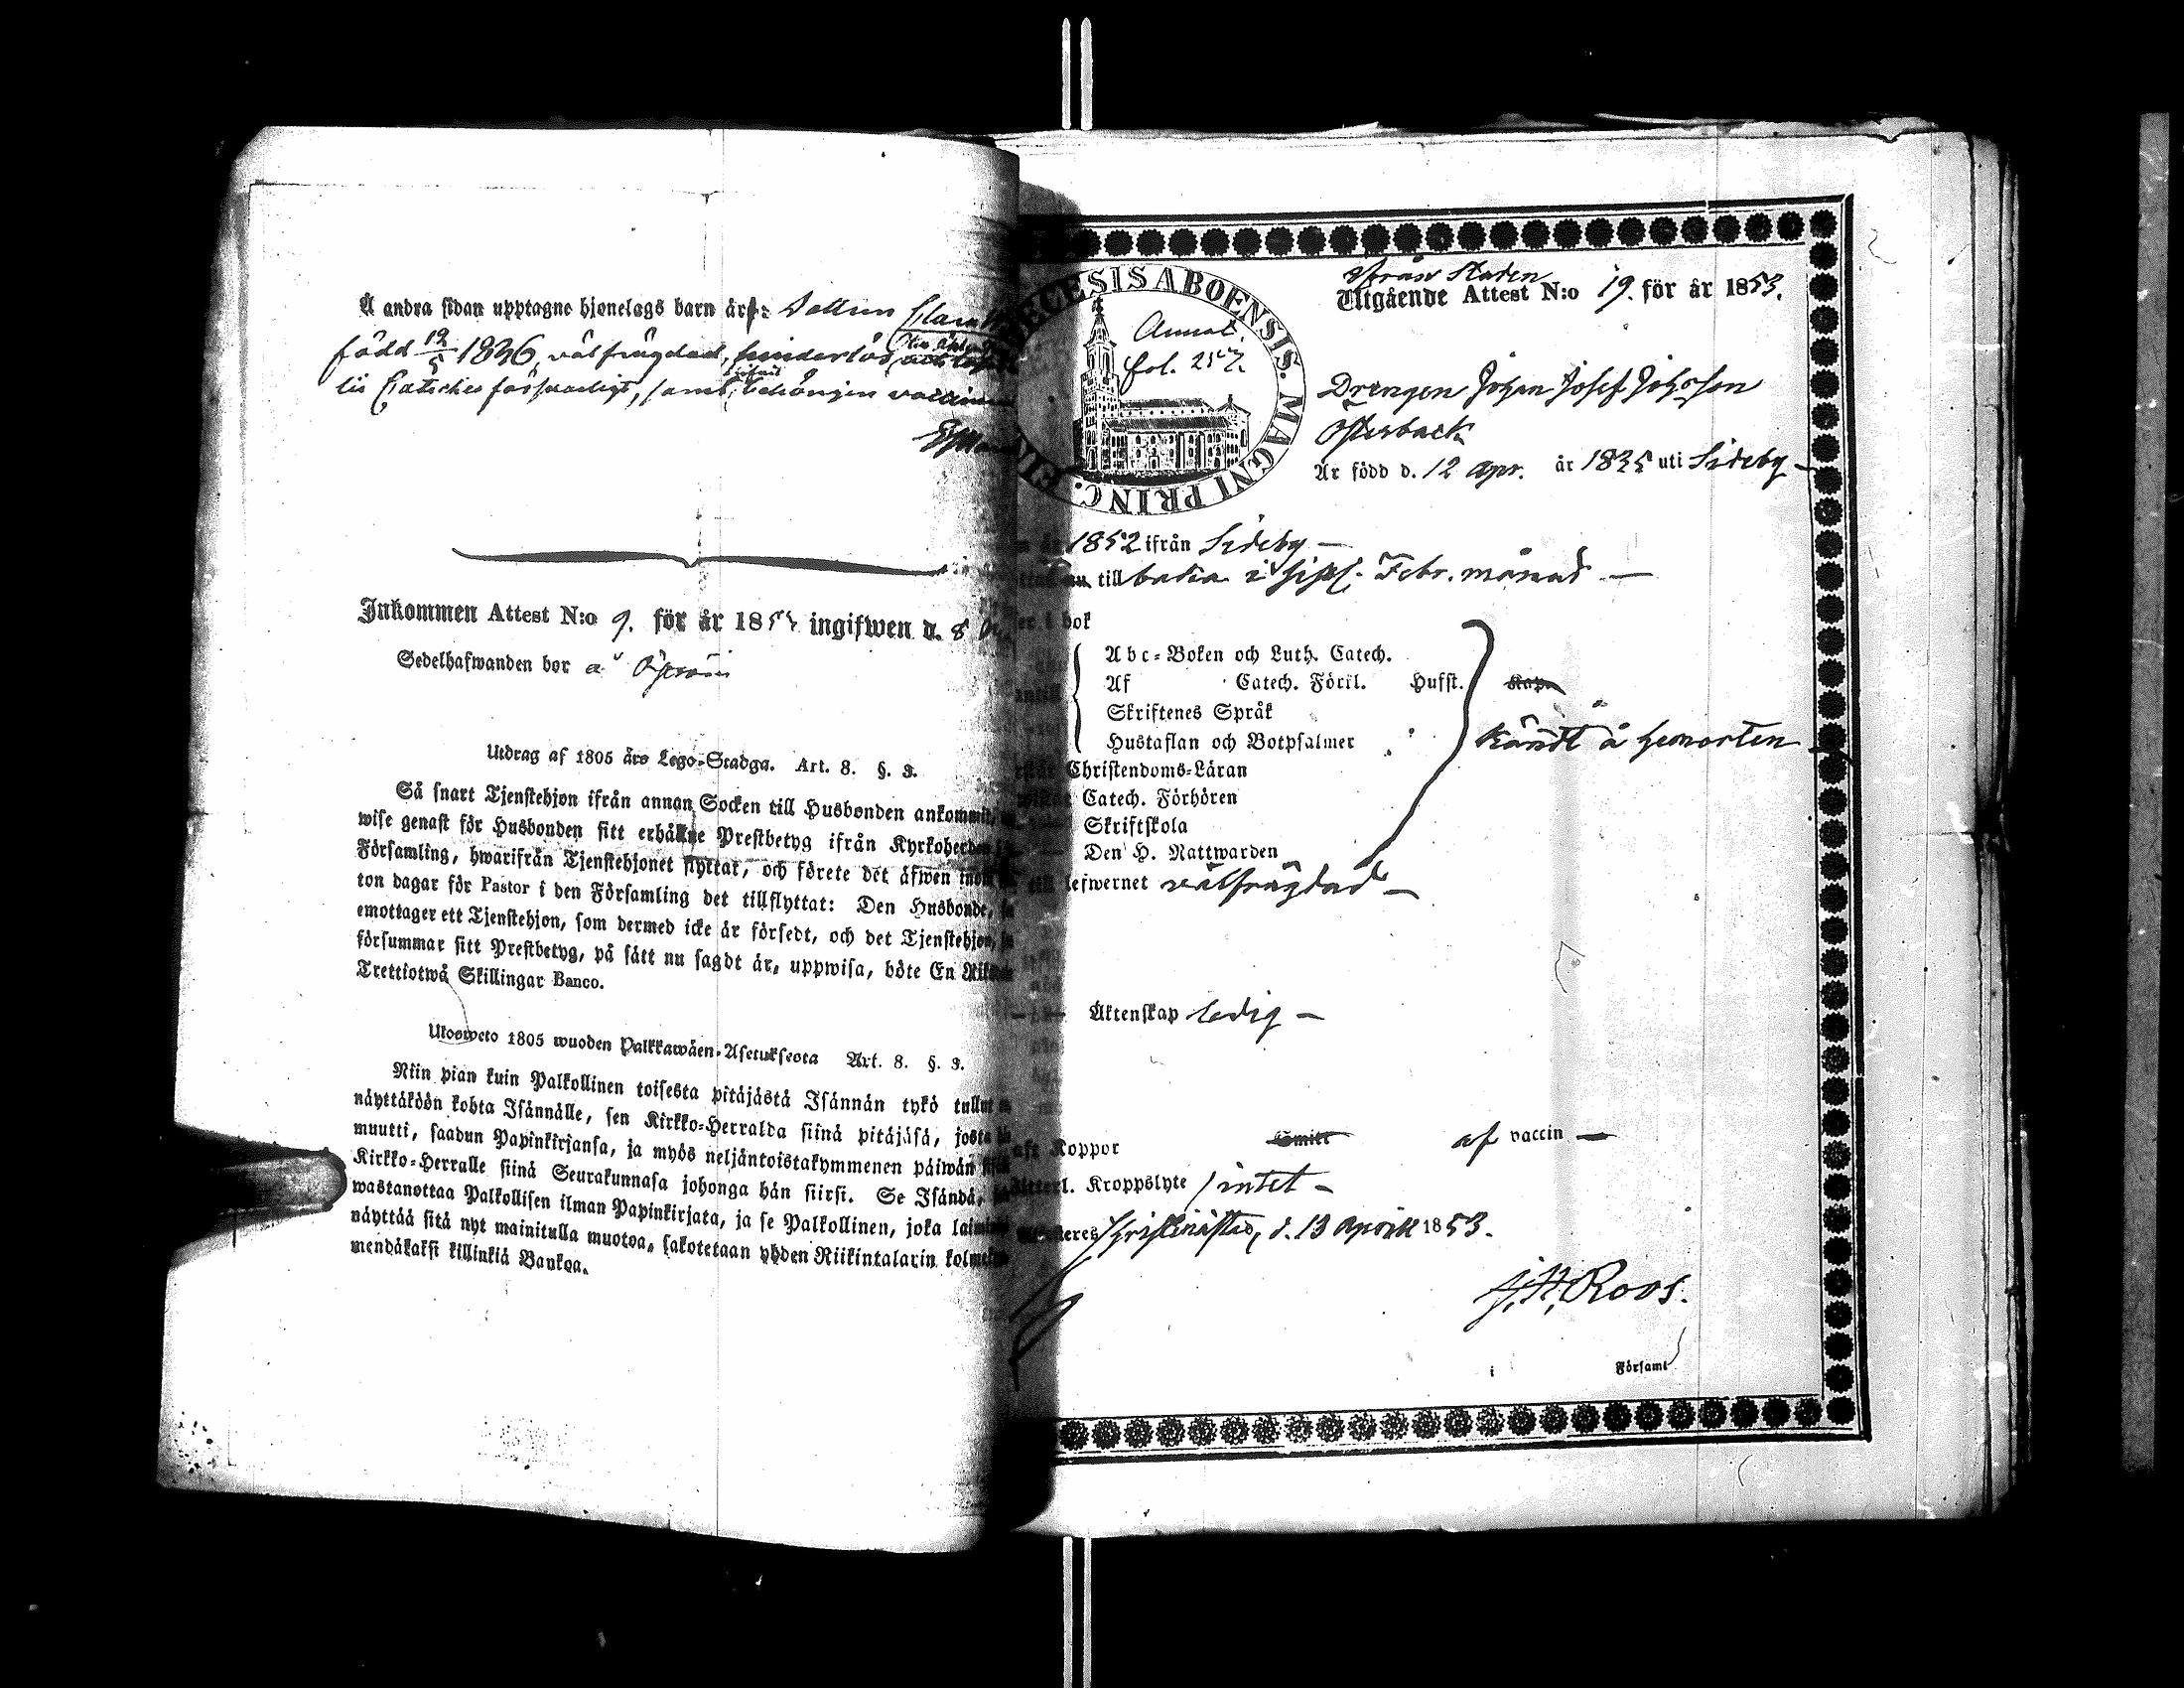 Å andra sidan upptagne hjonelags barn är: Dottren
född 12/5 1836, välfrägdad, hinderlös
Inkommen Attest N:o 9. för år 185 ingifwen d. 8
Sedelhafwanden bor å
Utdrag af 1805 års Lego-Stadga. Art. 8. §. 3.
Så snart Tjenstehjon ifrån annan Socken till Husbonden ankommit,
wise genast för Husbonden sitt erhållne Prestbetyg ifrån Kyrkoherden
Församling, hwarifrån Tjenstehjonet flyttat, och förete det äfwen inom
ton dagar för Pastor i den Församling det tillflyttat: Den Husbonde,
emottager ett Tjenstehjon, som dermed icke är försedt, och det Tjenstehjon,
försummar sitt Prestbetyg, på sätt nu sagdt är, uppwisa, böte En
Trettiotwå Skillingar Banco.
Ulosweto 1805 wuoden Palkkawäen-Asetuksesta Art. 8. §. 3.
Niin pian kuin Palkollinen toisesta pitäjästä Isännän tykö tullut
näyttäköön kohta Isännälle, sen Kirkko-Herralda siinä pitäjäsä, josta
muutti, saadun Papinkirjansa, ja myös neljäntoistakymmenen päiwän
Kirkko-Herralle siinä Seurakunnasa johonga hän siirsi. Se Isändä,
wastanottaa Palkollisen ilman Papinkirjata, ja se Palkollinen, joka
näyttää sitä nyt mainitulla muotoa, sakotetaan yhden Riikintalarin
mendäkaksi killinkiä Bankoa.
ECESIS ABOENSIS. MAGNI PRINC.
fol. 257.
från staden
Utgående Attest N:o 19. för år 1853.
Drengen Johan Josef Johosson
Österback
Är född d. 12 apr. år 1835 uti Sideby
1852 ifrån Sideby
till baka i sistl. Febr. månad
bok
Abc-Boken och Luth. Catech.
Af Catech. Förkl. Husst. Kap.
Skriftenes Språk
Hustaflan och Botpsalmer
kändt å hemorten
Christendoms-Läran
Catech. Förhören
Skriftskola
Den H. Nattwarden
till lefwernet välfrägdad
Äktenskap ledig
Koppor af vaccin
Kroppslyte intet
Christinæstad, d. 13 April 1853.
J. H. Roos.
i Församl